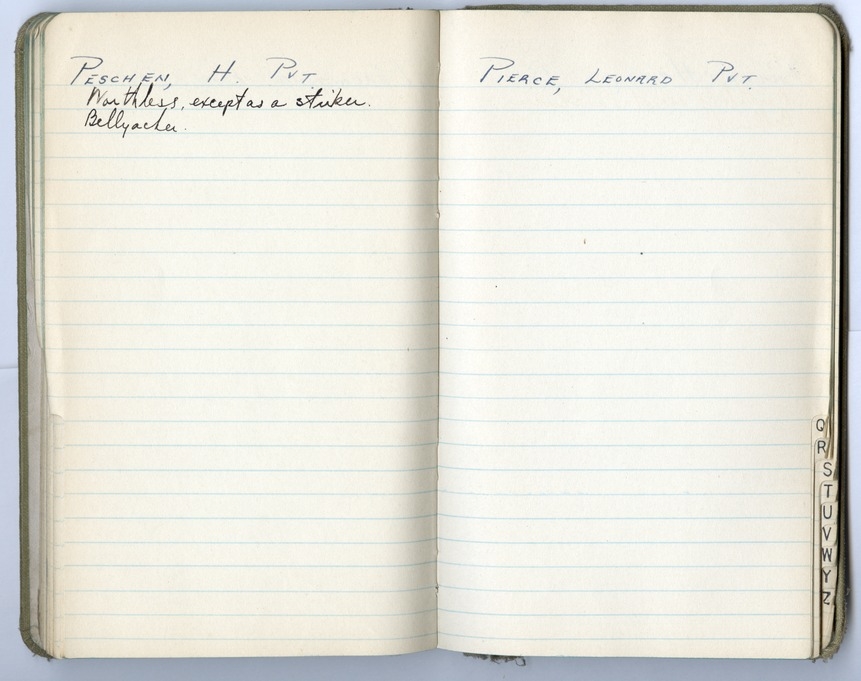 PESCHEN, H. PVT
Worthless, except as a striker.
Bellyacher.
PIERCE, LEONARD PVT.
Q
R
S
T
U
V
W
Y
Z